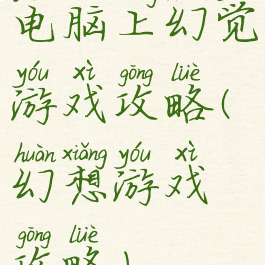 电脑上幻觉
yóu xì gōng lüè
游戏攻略(
huàn xiǎng yóu xì
幻想游戏
gōng lüè
攻略)